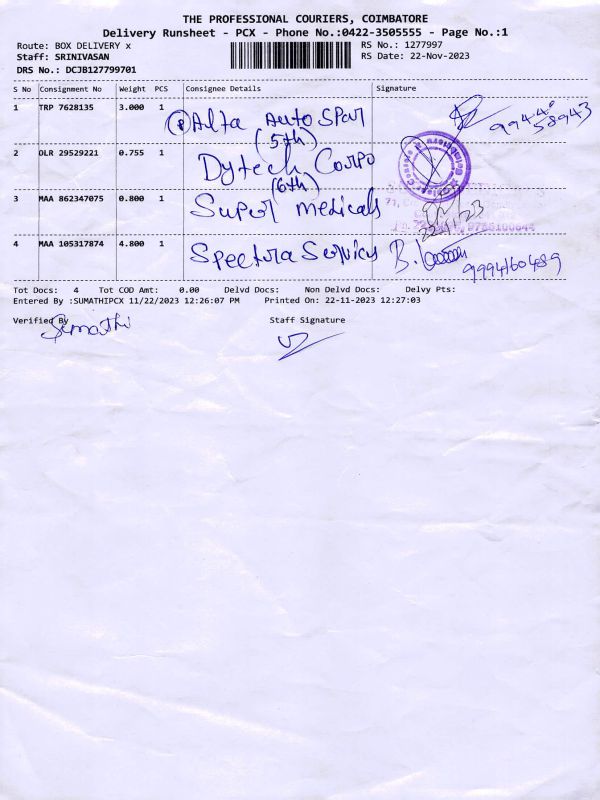 THE PROFESSIONAL COURIERS, COIMBATORE
Delivery Runsheet - PCX - Phone No.:0422-3505555 - Page No.:1
Route: BOX DELIVERY x
RS No.: 1277997
Staff: SRINIVASAN
RS Date: 22-Nov-2023
DRS No.: DCJB127799701
S No Consignment No Weight PCS Consignee Details Signature
1 TRP 7628135 3.000 1 Alfa Auto Spar
(5th)
99440 58943
2 DLR 29529221 0.755 1 Dytech Corpo
(6th)
3 MAA 862347075 0.800 1 Super Medicals
22/11/23
4 MAA 105317874 4.800 1 Spectra Services B.
9994160489
Tot Docs: 4 Tot COD Amt: 0.00 Delvd Docs: Non Delvd Docs: Delvy Pts:
Entered By :SUMATHIPCX 11/22/2023 12:26:07 PM Printed On: 22-11-2023 12:27:03
Verified By Staff Signature
Sumathi